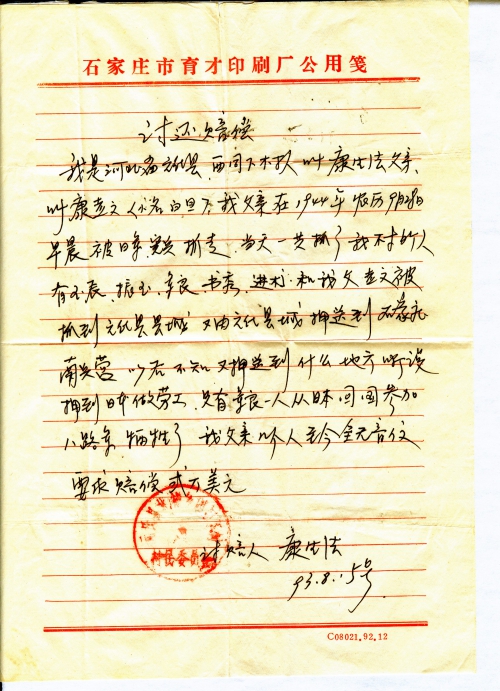 石家庄市育才印刷厂公用笺
讨还赔偿
我是河北省元氏县 人 叫康生法父亲
叫康 文 我父亲在1944年农历9月
早晨被日军 抓走 当天一共抓了我本村的人
有 辰 振玉 良 书 进 和我父 文被
抓到元氏县县城 又由元氏县城押送到石家庄
南兵营 以后不知又押送到什么地方听说
押到日本做劳工 只有 良一人从日本回国参加
八路军牺牲了 我父亲 人至今全无音信
要求赔偿 万美元
村民委员
讨赔人 康生法
93.8.15号
C08021.92.12